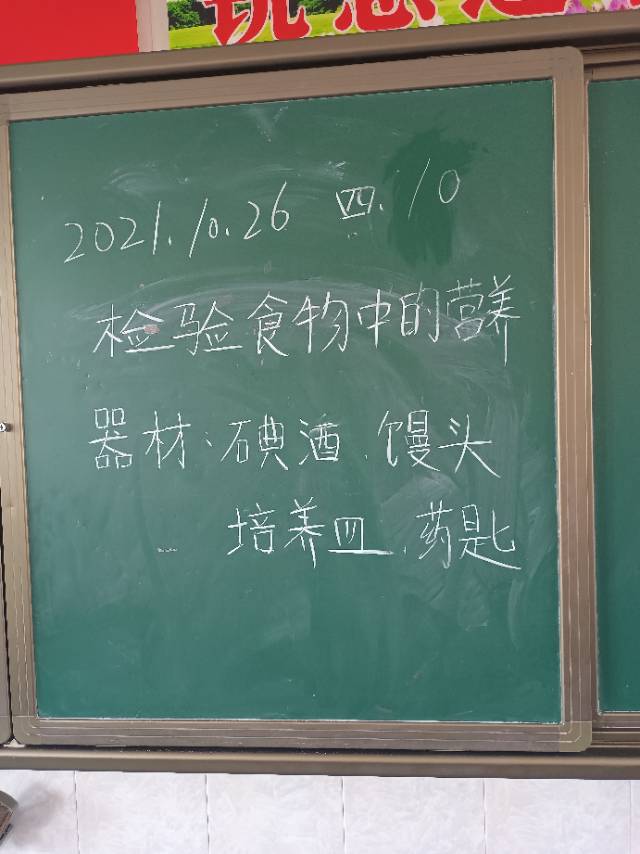 2021.10.26 四.10
检验食物中的营养
器材:碘酒、馒头
培养皿、药匙